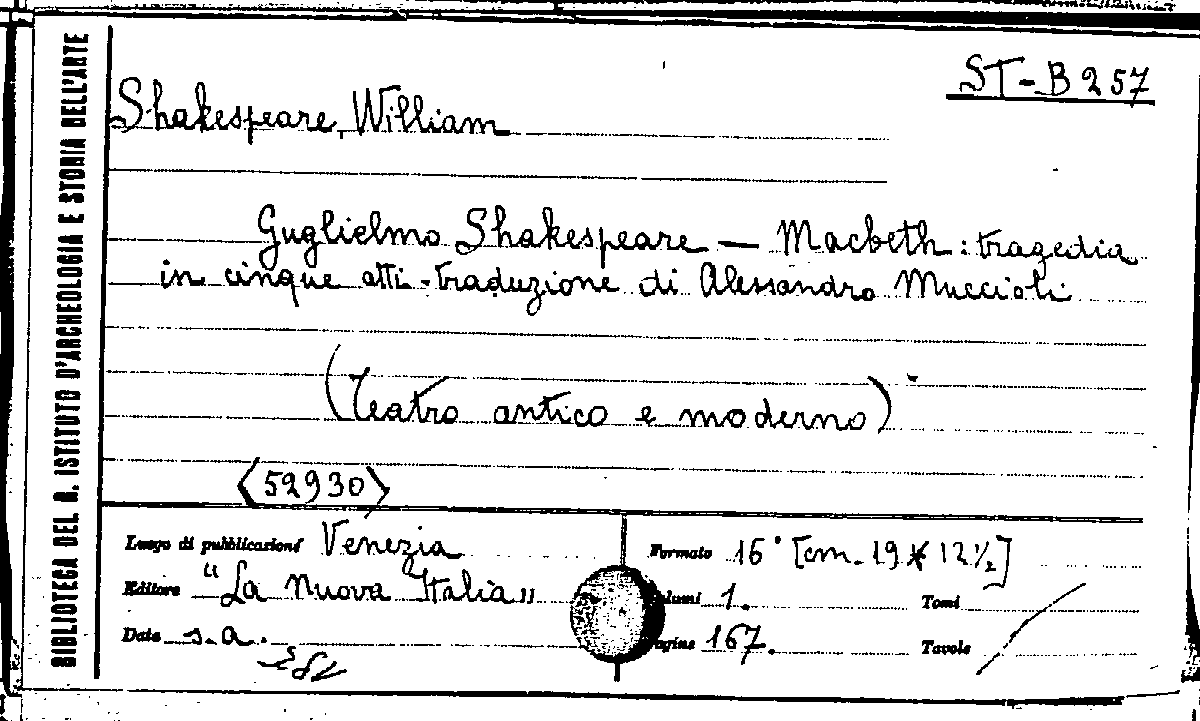 BIBLIOTECA DEL R. ISTITUTO D'ARCHEOLOGIA E STORIA DELL'ARTE
ST-B 257
Shakespeare, William
Guglielmo Shakespeare — Macbeth: tragedia
in cinque atti - traduzione di Alessandro Muccioli
(Teatro antico e moderno)
<52930>
Luogo di pubblicazione Venezia
Formato 16° [cm. 19 x 12½]
Editore "La Nuova Italia"
Volumi 1.
Tomi
Data s.a.
Pagine 167.
Tavole